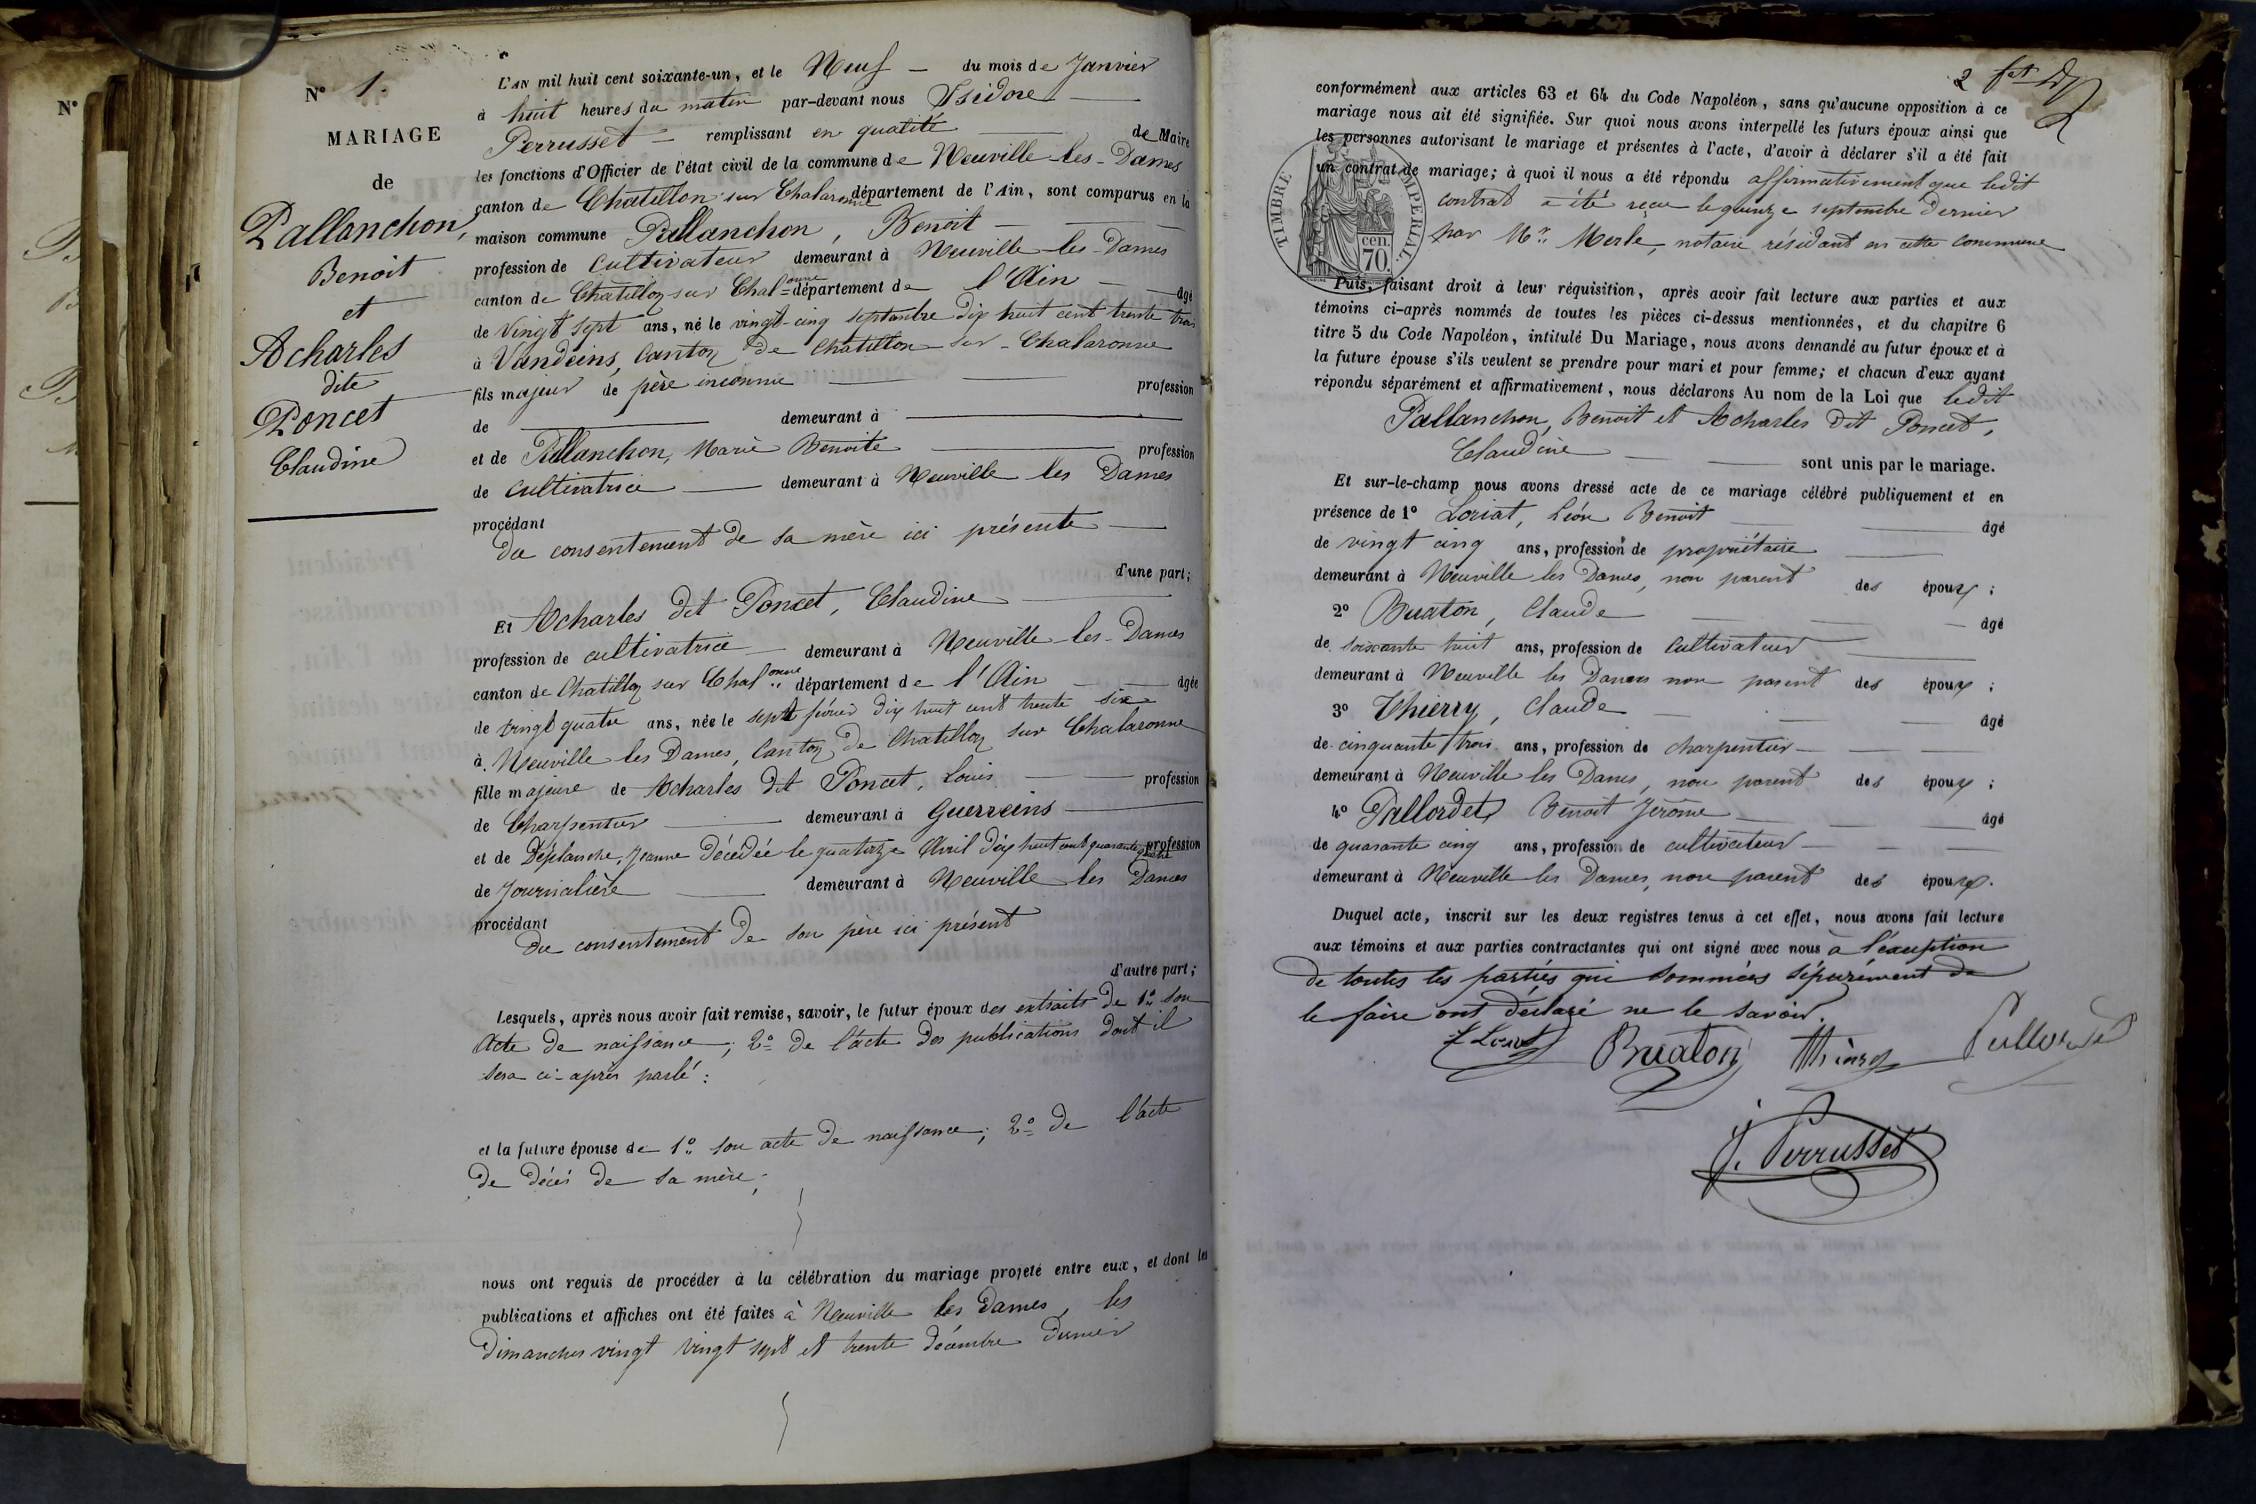 N° 1.
MARIAGE
de
Pallanchon,
Benoit
et
Acharles
dite
Poncet
Claudine
L'AN mil huit cent soixante-un, et le Neuf du mois de Janvier
à huit heures du matin par-devant nous Isidore
Perrusset remplissant en qualité de Maire
les fonctions d'Officier de l'état civil de la commune de Neuville-les-Dames
canton de Chatillon sur Chalaronne département de l'Ain, sont comparus en la
maison commune Pallanchon, Benoit
profession de cultivateur demeurant à Neuville-les-Dames
canton de Chatillon sur Chalonne département de l'Ain âgé
de vingt sept ans, né le vingt-cinq septembre dix huit cent trente trois
à Vandeins, Canton de Chatillon-sur-Chalaronne
fils majeur de père inconnu profession
de demeurant à
et de Pallanchon, Marie Benoite profession
de cultivatrice demeurant à Neuville les Dames
procédant
du consentement de sa mère ici présente
d'une part;
Et Acharles dit Poncet, Claudine
profession de cultivatrice demeurant à Neuville-les-Dames
canton de Chatillon sur Chalonne département de l'Ain âgée
de vingt quatre ans, née le sept février dix huit cent trente six
à Neuville les Dames, Canton de Chatillon sur Chalaronne
fille majeure de Acharles dit Poncet, Louis profession
de Charpentier demeurant à Guerreins
et de Déplanche, Jeanne décédée le quatorze Avril dix huit cent quarante quatre profession
de Journalière demeurant à Neuville les Dames
procédant
du consentement de son père ici présent
d'autre part;
Lesquels, après nous avoir fait remise, savoir, le futur époux des extraits de 1° son
Acte de naissance; 2° de l'acte des publications dont il
sera ci-après parlé:
et la future épouse de 1° son acte de naissance; 2° de l'acte
de décès de sa mère;
nous ont requis de procéder à la célébration du mariage projeté entre eux, et dont les
publications et affiches ont été faites à Neuville les Dames, les
dimanches vingt vingt sept et trente décembre dernier
2
conformément aux articles 63 et 64 du Code Napoléon, sans qu'aucune opposition à ce
mariage nous ait été signifiée. Sur quoi nous avons interpellé les futurs époux ainsi que
les personnes autorisant le mariage et présentes à l'acte, d'avoir à déclarer s'il a été fait
un contrat de mariage; à quoi il nous a été répondu affirmativement que ledit
contrat a été reçu le quinze septembre dernier
par Mr. Merle, notaire résidant en cette commune
TIMBRE IMPERIAL.
cen.
70.
Puis, faisant droit à leur réquisition, après avoir fait lecture aux parties et aux
témoins ci-après nommés de toutes les pièces ci-dessus mentionnées, et du chapitre 6
titre 5 du Code Napoléon, intitulé Du Mariage, nous avons demandé au futur époux et à
la future épouse s'ils veulent se prendre pour mari et pour femme; et chacun d'eux ayant
répondu séparément et affirmativement, nous déclarons Au nom de la Loi que ledit
Pallanchon, Benoit et Acharles dit Poncet,
Claudine sont unis par le mariage.
Et sur-le-champ nous avons dressé acte de ce mariage célébré publiquement et en
présence de 1° Loriat, Léon Benoit âgé
de vingt cinq ans, profession de propriétaire
demeurant à Neuville les Dames, non parent des époux;
2° Buaton, Claude âgé
de soixante huit ans, profession de cultivateur
demeurant à Neuville les Dames non parent des époux;
3° Thierry, Claude âgé
de cinquante trois ans, profession de charpentier
demeurant à Neuville les Dames, non parent des époux;
4° Pallordet, Benoit Jérôme âgé
de quarante cinq ans, profession de cultivateur
demeurant à Neuville les Dames, non parent des époux.
Duquel acte, inscrit sur les deux registres tenus à cet effet, nous avons fait lecture
aux témoins et aux parties contractantes qui ont signé avec nous à l'exception
de toutes les parties qui sommées séparément de
le faire ont déclaré ne le savoir.
Buaton Thierry Pallordet
J. Perrusset
N°